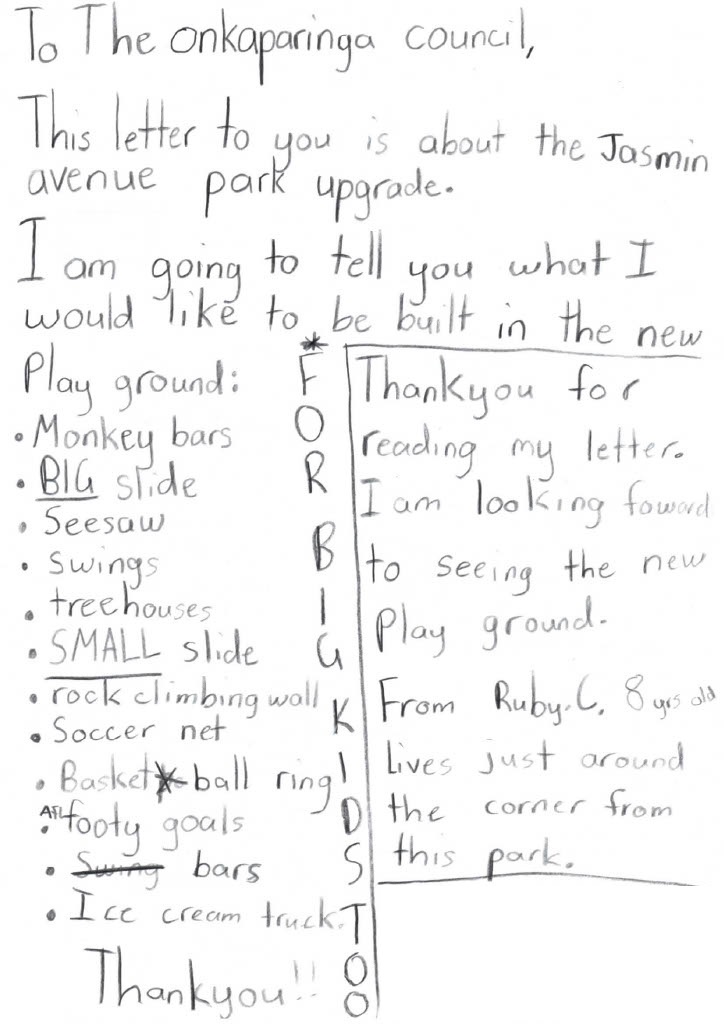 To The onkaparinga council,
This letter to you is about the Jasmin
avenue park upgrade.
I am going to tell you what I
would like to be built in the new
Play ground:
• Monkey bars
• BIG slide
• Seesaw
• swings
• treehouses
• SMALL slide
• rock climbing wall
• Soccer net
• Basket ball ring
• AFL footy goals
• Swing bars
• Ice cream truck.
Thankyou!!
* FOR BIG KIDS TOO
Thankyou for
reading my letter.
I am looking foword
to seeing the new
Play ground.
From Ruby.C, 8 yrs old
lives just around
the corner from
this park.